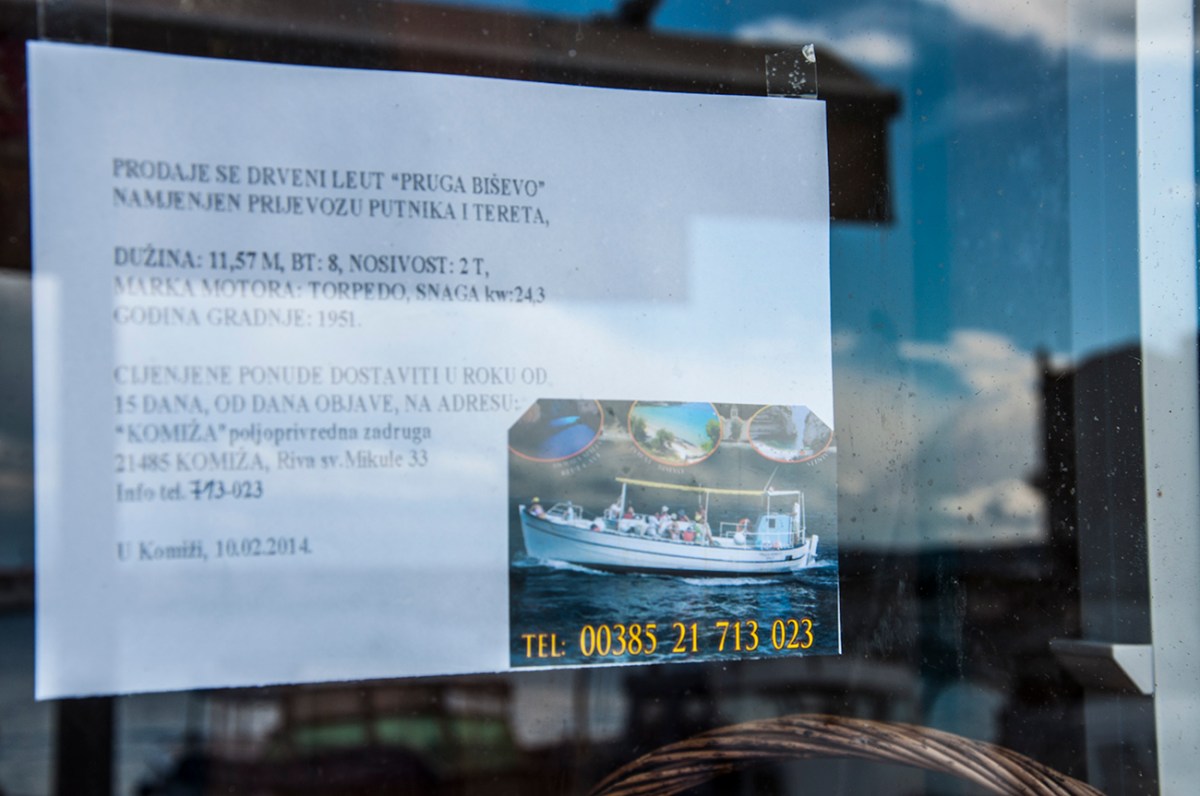 PRODAJE SE DRVENI LEUT "PRUGA BIŠEVO"
NAMJENJEN PRIJEVOZU PUTNIKA I TERETA,
DUŽINA: 11,57 M, BT: 8, NOSIVOST: 2 T,
MARKA MOTORA: TORPEDO, SNAGA kw:24,3
GODINA GRADNJE: 1951.
CIJENJENE PONUDE DOSTAVITI U ROKU OD
15 DANA, OD DANA OBJAVE, NA ADRESU:
"KOMIŽA" poljoprivredna zadruga
21485 KOMIŽA, Riva sv.Mikule 33
Info tel. 713-023
U Komiži, 10.02.2014.
TEL: 00385 21 713 023